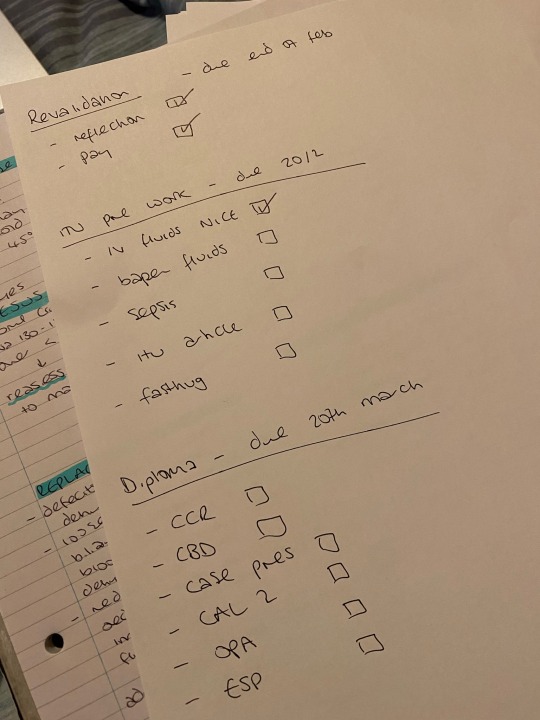 Revalidation - due end of feb
- reflection ☑
- pay ☑
ITU pre work - due 20/2
- IV fluids NICE ☑
- bapen fluids ☐
- sepsis ☐
- itu article ☐
- fasthug ☐
Diploma - due 20th march
- CCR ☐
- CBD ☐
- case pres ☐
- CAL 2 ☐
- OPA ☐
- ESP ☐
45°
reassess
to
-